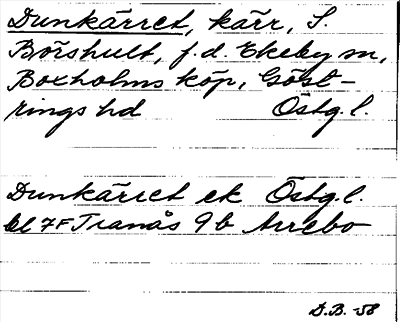 Dunkärret, kärr, S.
Börshult, f.d. Ekeby sn,
Boxholms köp, Göst-
rings hd Östg. l.
Dunkärret ek Östg. l.
bl 7F Tranås 9b Arrebo
D.B. -58